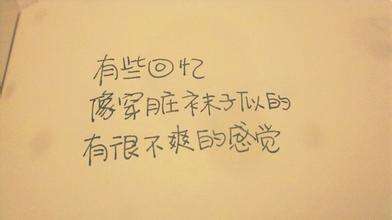 有些回忆
像穿脏袜子似的
有很不爽的感觉